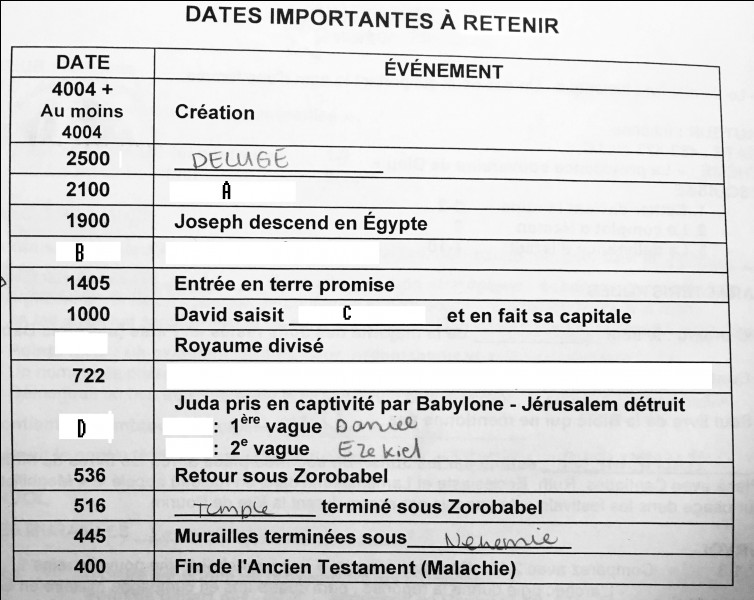 DATES IMPORTANTES À RETENIR
DATE ÉVÉNEMENT
4004 +
Au moins
4004 Création
2500 DELUGE
2100 A
1900 Joseph descend en Égypte
B
1405 Entrée en terre promise
1000 David saisit C et en fait sa capitale
Royaume divisé
722
Juda pris en captivité par Babylone - Jérusalem détruit
D : 1ère vague Daniel
: 2e vague Ezekiel
536 Retour sous Zorobabel
516 Temple terminé sous Zorobabel
445 Murailles terminées sous Nehemie
400 Fin de l'Ancien Testament (Malachie)